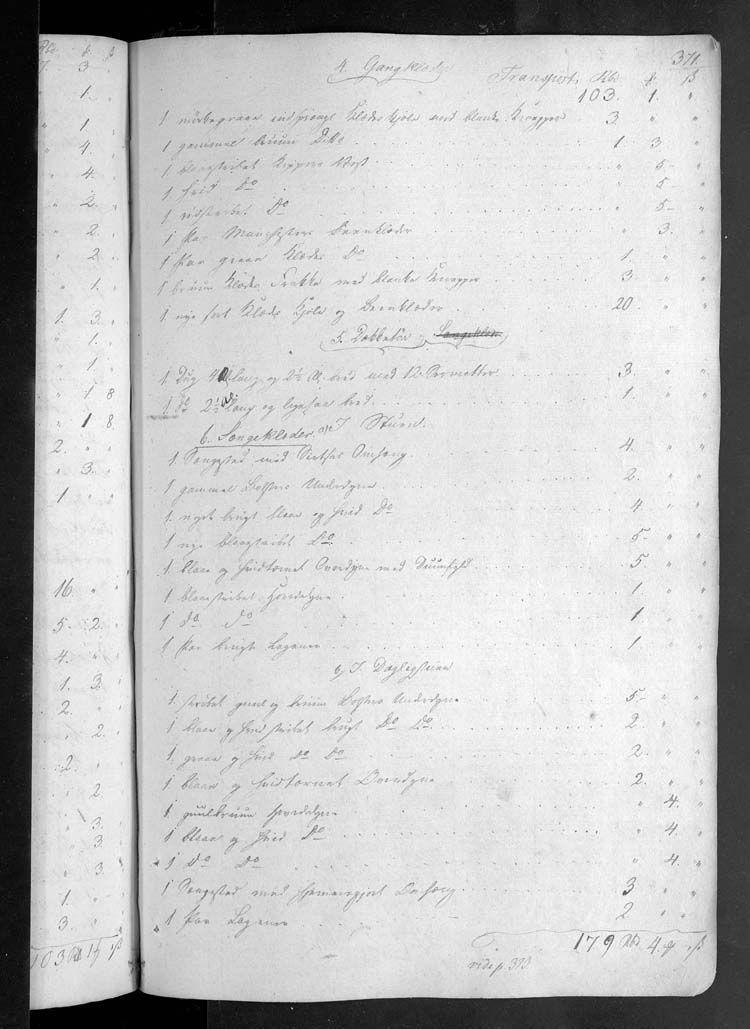 Rbd. ꝟ ß
7. 3. "
" 1. "
" 1. "
" 4. "
" 4. "
" 2. "
" 2. "
" 2. "
" 1. "
1. 3. "
" 1. "
" 1. "
" 1 8
" 1 8
2. " "
" 3. "
1 " "
16 " "
5. 2. "
4. " "
1. 3. "
2. " "
" 2. "
2. " "
" 2. "
" 3. "
" 3. "
" 3. "
1. " "
3. " "
103
371.
4. Gangklæder
Transport Rbd ꝟ ß
103. 1. "
1 mørkegraa Klædes Kjole med blanke Knapper 3. " "
1 gammel bruun Dito 1 3 "
1 blaastribet Vest " 5 "
1 hvid Do " 5 "
1 rødstribet Do " 5 "
1 Par Manchesters Beenklæder " 3. "
1 Par graa Klædes Do 1. " "
1 bruun Klædes Frakke med blanke Knapper 3 " "
1 nye sort Klædes Kjole og Beenklæder 20 " "
5. Dækketøi Sengeklæder
1 Dug 4 Al. lang og 2½ Al. bred med 12 Servietter 3. " "
1 Do 2½ Al. lang og ligesaa bred 1. " "
6. Sengeklæder a, I Stuen
1. Sengested med Sirtses Omhæng 4. " "
1 gammel Bolsters Underdyne 2. " "
1 meget brugt blaa og hvid Do 4 " "
1 nye blaastribet Do 5 " "
1 blaa og hvidtærnet Overdyne med Duunfyld 5 " "
1 blaastribet Hoveddyne 1 " "
1 Do Do 1 " "
1 Par brugte Lagener 1 " "
b, I Dagligstuen
1. stribet guul og bruun Bolsters Underdyne 5 " "
1 blaa og hvid stribet brugt Do Do 2. " "
1. graa og hvid Do Do 2. " "
1 blaa og hvidtærnet Overdyne 2 " "
1 guulbruun Hoveddyne " 4. "
1 blaa og hvid Do " 4. "
1 Do Do " 4. "
1 Sengested med hjemmegjort Omhæng 3 " "
1 Par Lagener 2 " "
179 Rbd 4 ꝟ " ß
vide p. 373